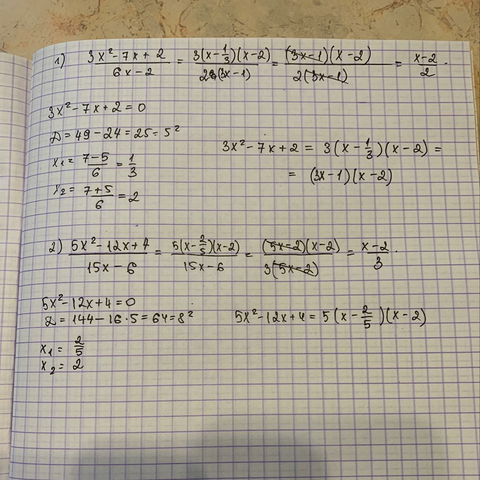 1) (3x²-7x+2)/(6x-2) = 3(x-1/3)(x-2)/2(3x-1) = (3x-1)(x-2)/2(3x-1) = (x-2)/2.
3x²-7x+2=0
D=49-24=25=5²
x₁=(7-5)/6=1/3
x₂=(7+5)/6=2
3x²-7x+2 = 3(x-1/3)(x-2) =
= (3x-1)(x-2)
2) (5x²-12x+4)/(15x-6) = 5(x-2/5)(x-2)/(15x-6) = (5x-2)(x-2)/3(5x-2) = (x-2)/3.
5x²-12x+4=0
D=144-16·5=64=8²
x₁= 2/5
x₂= 2
5x²-12x+4=5(x-2/5)(x-2)